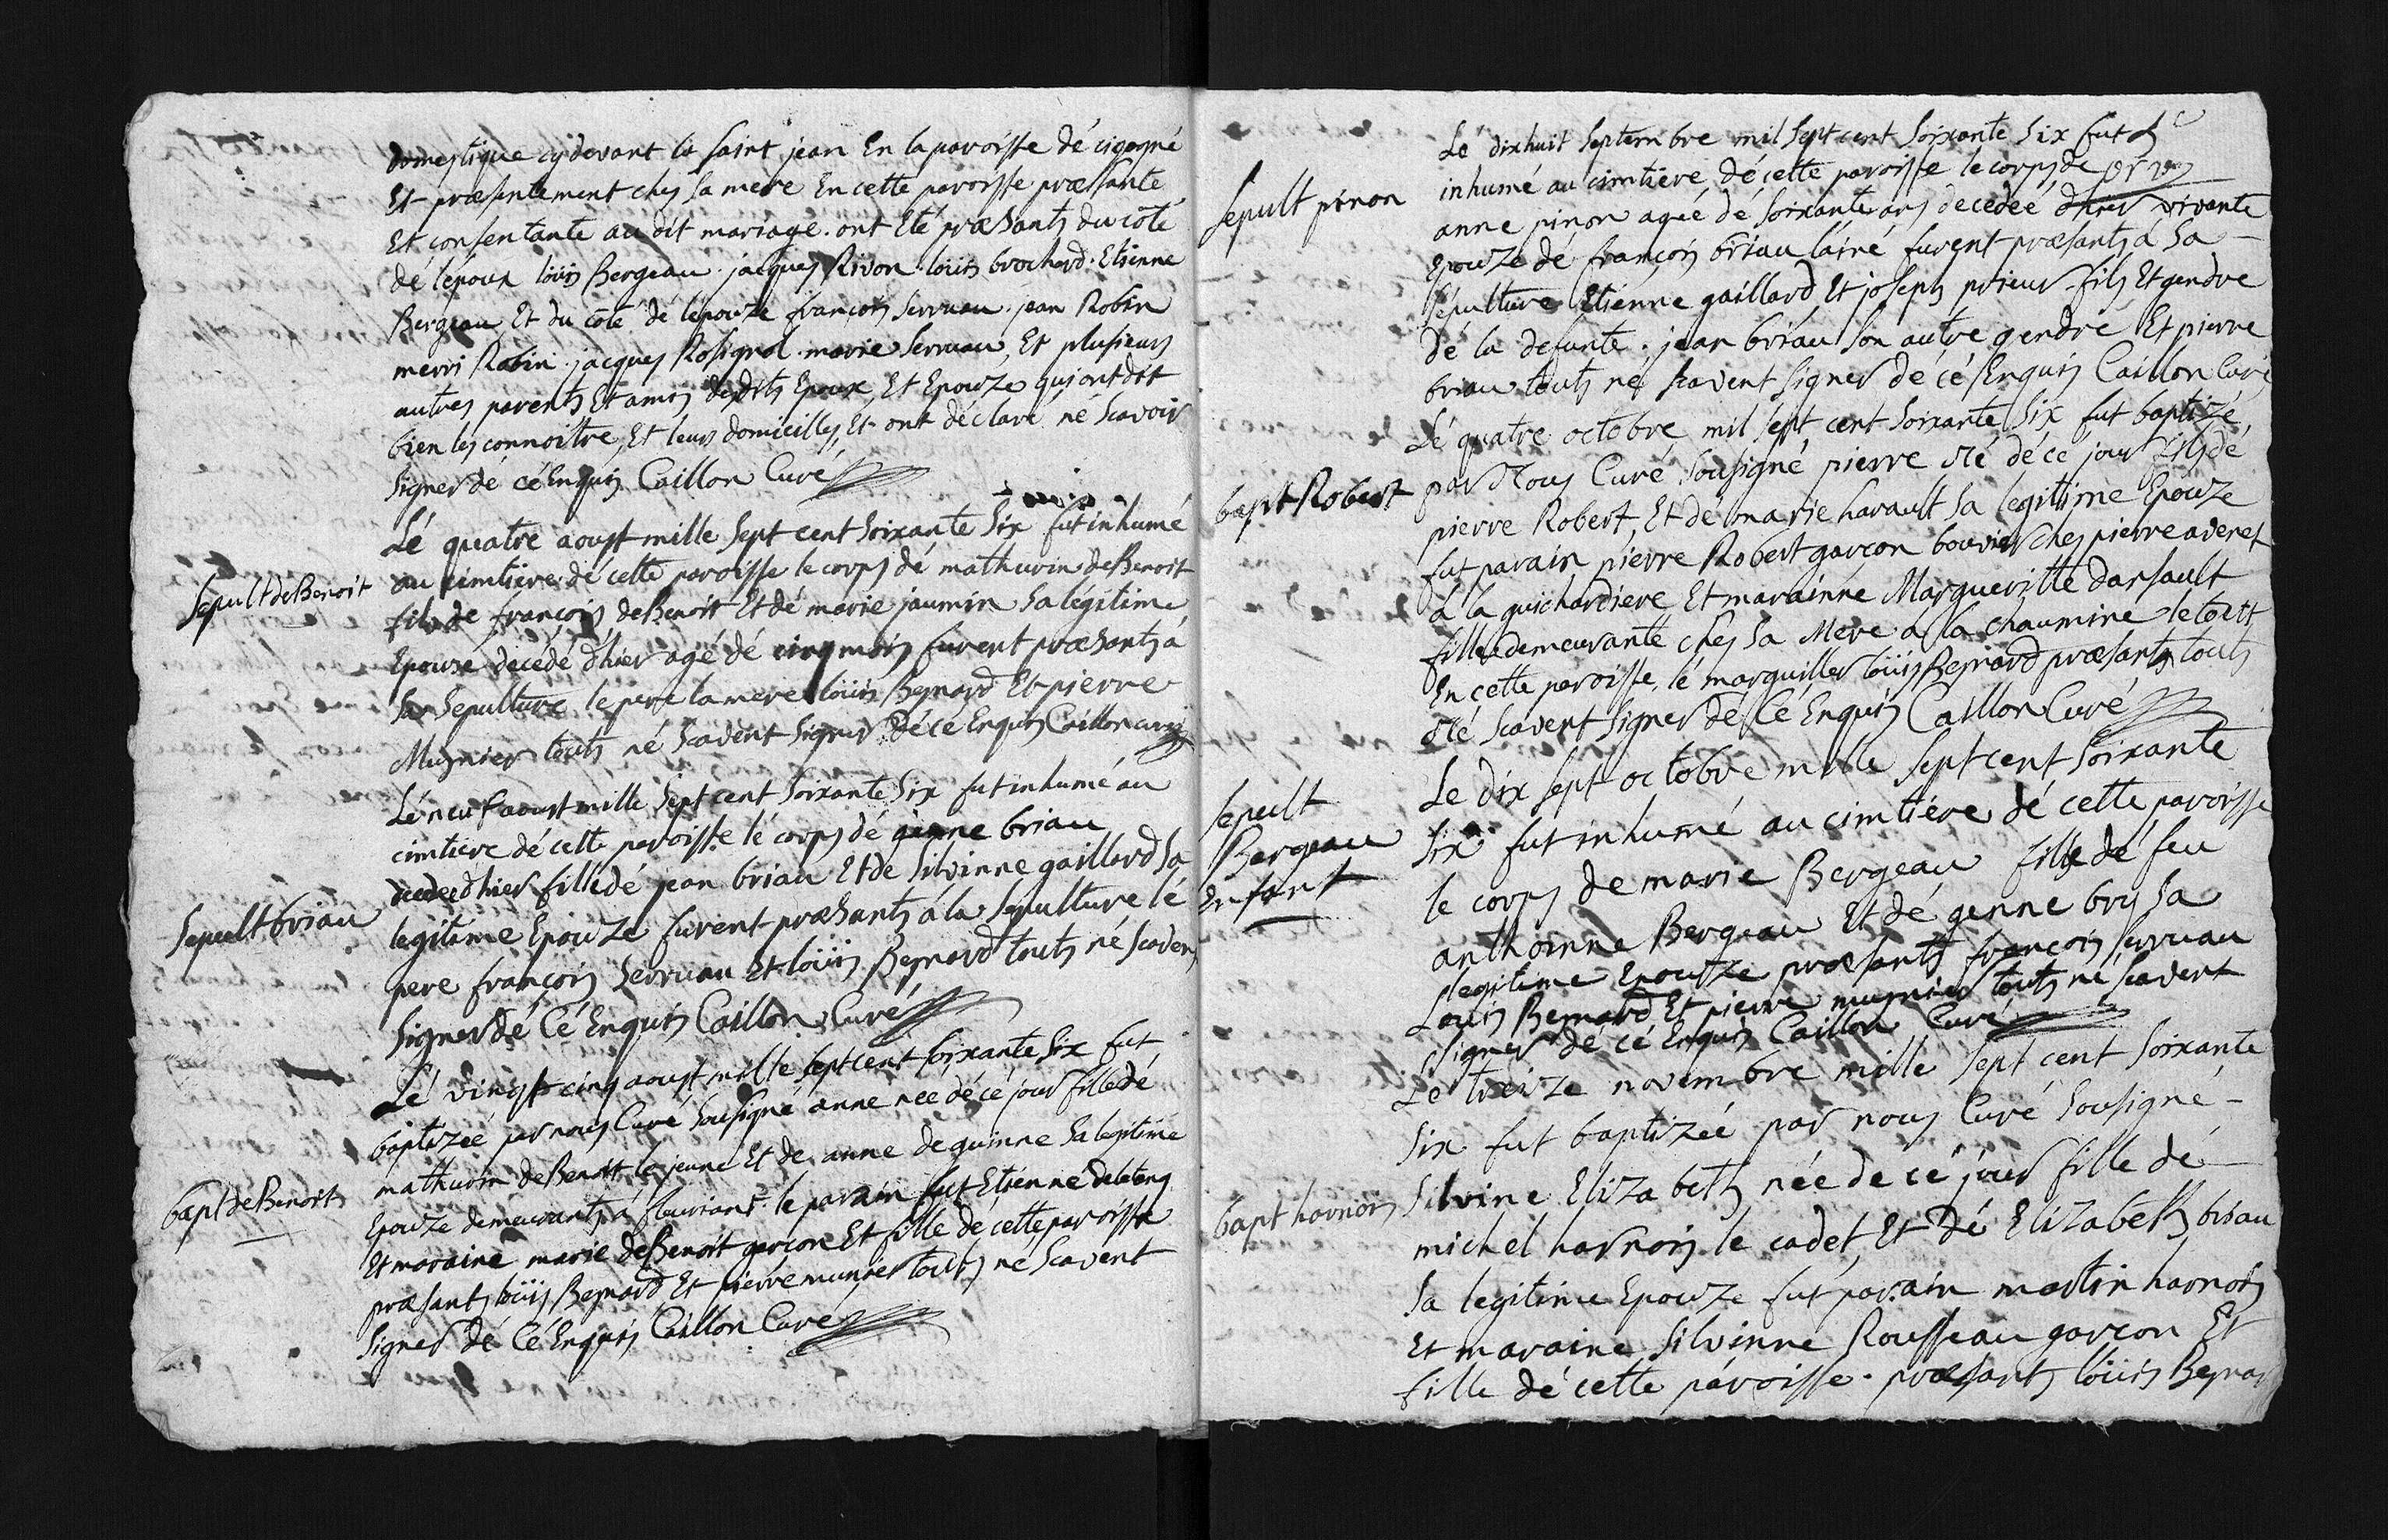 domestique cydevant à Saint jean En la paroisse dé cigogné
Et præsentement chez sa mere En cette paroisse præsante
Et consentante au dit mariage. ont Eté præsants du coté
dé lépoux loüis Bergeau. jacques Rivon. loüis brochard. Etienne
Bergeau Et du coté dé lépouze françois Serruau. jean Robin
merri Robin. jacques Rosignol. marie Serruau, Et plusieurs
autres parents Et amis desdits Epoux, Et Epouze qui ont dit
bien les connoitre, Et leurs domicilles, Et ont déclaré né scavoir
signer dé cé Enquis Caillon Curé
Sepult deBenoit
Lé quatre aoust mille sept cent soixante six fut inhumé
au cimtiere dé cette paroisse le corps dé mathurin deBenoit
fils de françois deBenoit Et dé marie jaumin sa légitime
Epouze decédé d'hier agé dé cinq mois furent præsants à
sa sepulture le pere la mere loüis Besnard Et pierre
Musnier touts né scavent signer dé cé Enquis Caillon curé
Sepult briau
Lé neuf aoust mille sept cent soixante six fut inhumé au
cimtiere dé cette paroisse lé corps dé genne briau
decedeé d'hier fille dé jean briau Et de Silvinne gaillard sa
legitime Epouze furent præsants á la sepulture lé
pere françois Serruau Et loüis Besnard touts né scavent
signer dé Cé Enquis Caillon Curé
bapt deBenoit
Lé vingt cinq aoust mille sept cent soixante six fut
baptizeé par nous Curé sousigné anne neé dé cé jour fille dé
mathurin deBenoit le jeune Et de anne deguinne sa legitime
Epouze demeurants á fleuriant. le parain fut Etienne deletang
Et maraine marie deBenoit garçon Et fille dé cette paroisse
præsants loüis Besnard Et pierre munier touts né scavent
signer dé Cé Enquis Caillon Curé
Sepult pinon
Lé dixhuit septembre mil sept cent soixante six fut
inhumé au cimtiere dé cette paroisse le corps de
anne pinon ageé dé soixante ans decedeé d'hier vivante
Epouze dé françois briau lainé furent præsants á sa
sépulture Etiénne gaillard Et joseph prieur fils Et gendre
dé la defunte. jean briau son autre gendre Et pierre
briau touts né scavent signer dé cé Enquis Caillon Curé
bapt Robert
Lé quatre octobre mil sept cent soixante six fut baptizé
par Nous Curé sousigné pierre né dé cé jour fils dé
pierre Robert Et de marie havault sa legitime Epouze
fut parain pierre Robert garcon bouvier chez pierre avenet
á la guichardiere Et marainne Margueritte darsault
fille demeurante chez sa Mere a la chaumine le tout
En cette paroisse. lé marguiller loüis Besnard præsants touts
né scavent signer dé Cé Enquis Caillon Curé
Sepult
Bergeau
Enfant
Le dix sept octobre mille sept cent soixante
six fut inhumé au cimtiére dé cette paroisse
le corps de marie Bergeau fille dé feu
anthoinne Bergeau Et dé genne brys sa
legitime Epouze præsants françois serruau
Louis Besnard Et pierre musnier touts né scavent
signer dé cé Enquis Caillon Curé
bapt harnois
Le treize novembre mille sept cent soixante
six fut baptizeé par nous Curé sousigné
Silvine Elizabeth née de cé jour fille dé
michel harnois le cadet, Et dé Elizabeth briau
sa legitime Epouze fut parain martin harnois
Et maraine Silvinne Rousseau garcon Et
fille dé cette paroisse. præsants loüis Besnard